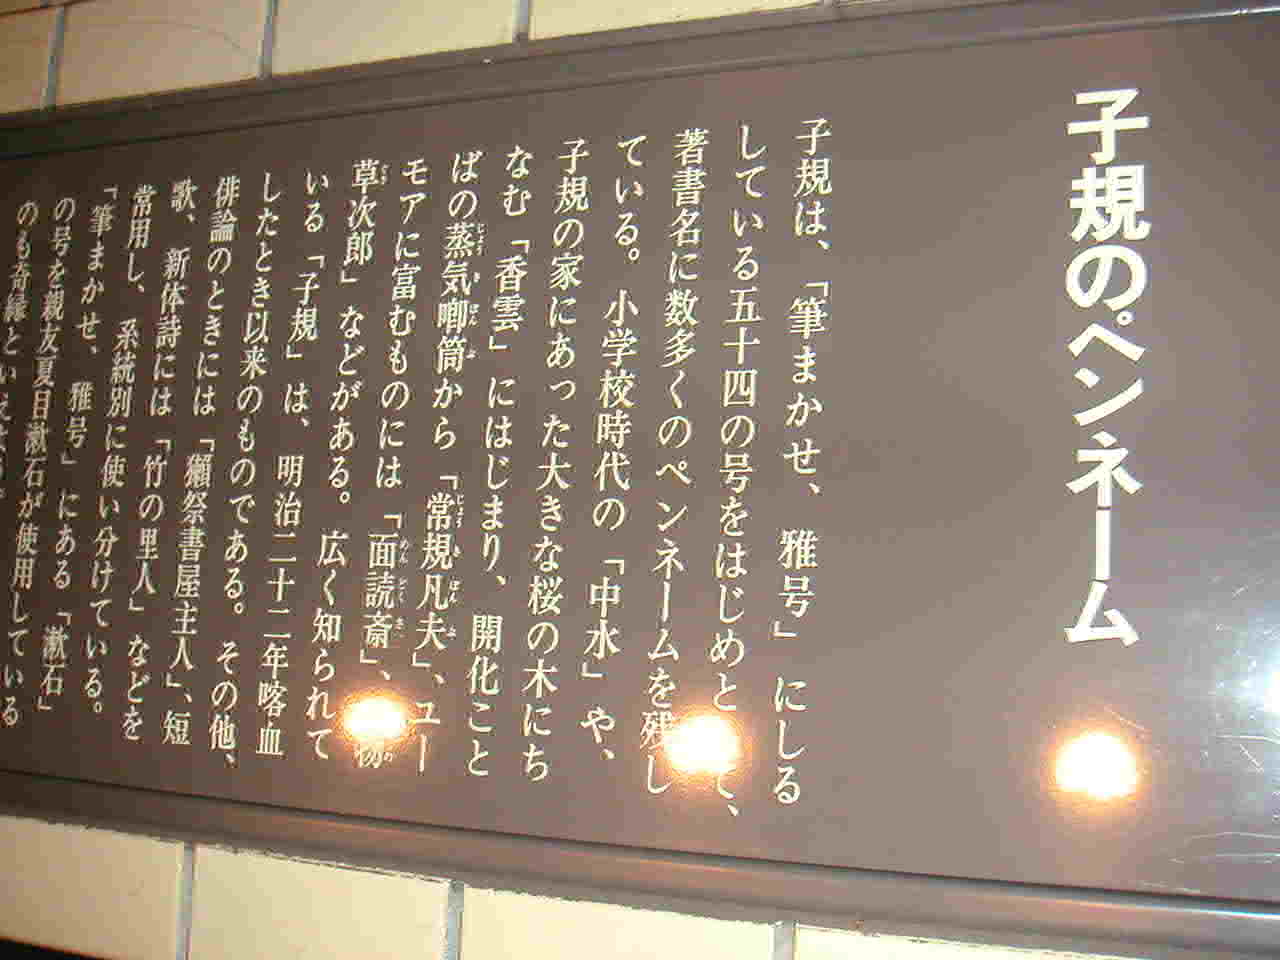 子規のペンネーム
子規は、「筆まかせ、雅号」にしる
している五十四の号をはじめと て、
著書名に数多くのペンネームを残し
ている。小学校時代の「中水」や、
子規の家にあった大きな桜の木にち
なむ「香雲」にはじまり、開化こと
ばの蒸気喞筒から「常規凡夫」、ユー
モアに富むものには「面読斎」、 物
草次郎」などがある。広く知られて
いる「子規」は、明治二十二年喀血
したとき以来のものである。その他、
俳論のときには「獺祭書屋主人」、短
歌、新体詩には「竹の里人」などを
常用し、系統別に使い分けている。
「筆まかせ、雅号」にある「漱石」
の号を親友夏目漱石が使用している
のも奇縁といえよう。